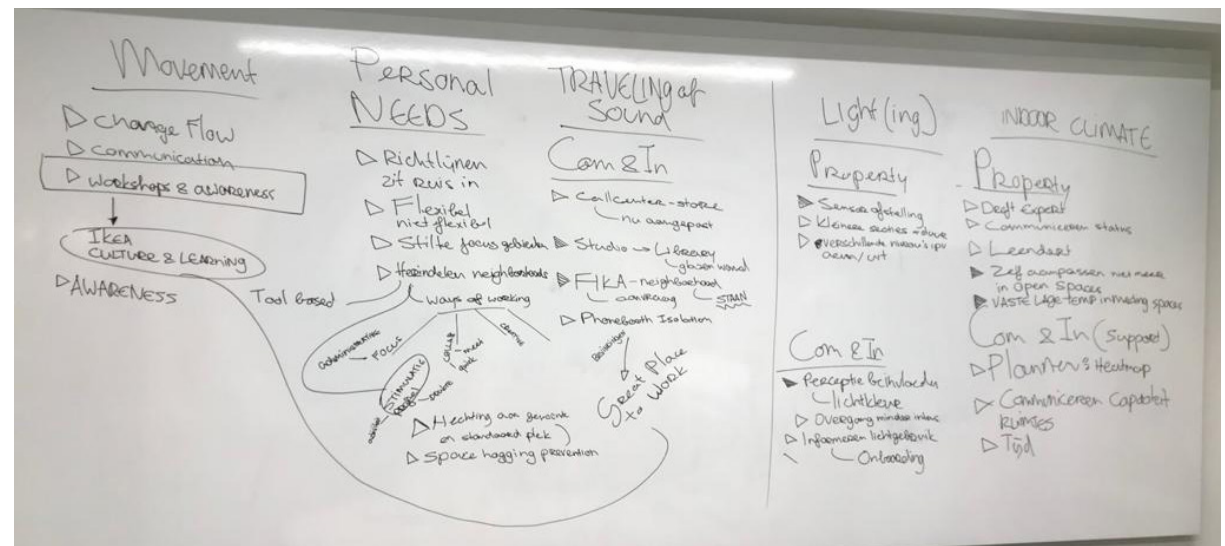 Movement
▷ change Flow
▷ communication
▷ workshops & awareness
IKEA
CULTURE & LEARNING
▷ AWARENESS
Personal
NEEDS
▷ Richtlijnen
zit ruis in
▷ Flexibel
niet flexibel
▷ Stilte focus gebieden
▷ Herindelen neighborhoods
Tool based
ways of working
administrative
FOCUS
STIMULATIE
COLLAB
meet
quick
▷ Hechting aan gewoonte
en standaard plek
▷ Space hogging prevention
TRAVELING of
SOUND
Com & In
▷ Callcenter - store
nu aangepast
▷ Studio → Library
glazen wand
▷ FIKA - neighborhood
STAAN
▷ Phonebooth Isolation
Great Place
to Work
Light(ing)
Property
▷ Sensor afstelling
▷ kleinere secties
▷ verschillende niveau's ipv
aan/uit
Com & In
▷ Perceptie beïnvloeden
lichtkleur
▷ Overgang minder intens
▷ Informeren lichtgebruik
Onboarding
INDOOR CLIMATE
Property
▷ Deft Expert
▷ Communiceren status
▷ Leendert
▷ Zelf aanpassen niet meer
in Open Spaces
▷ VASTE Lage temp in meeting spaces
Com & In (Support)
▷ Planner & Heatmap
▷ Communiceren Capaciteit
Ruimtes
▷ Tijd